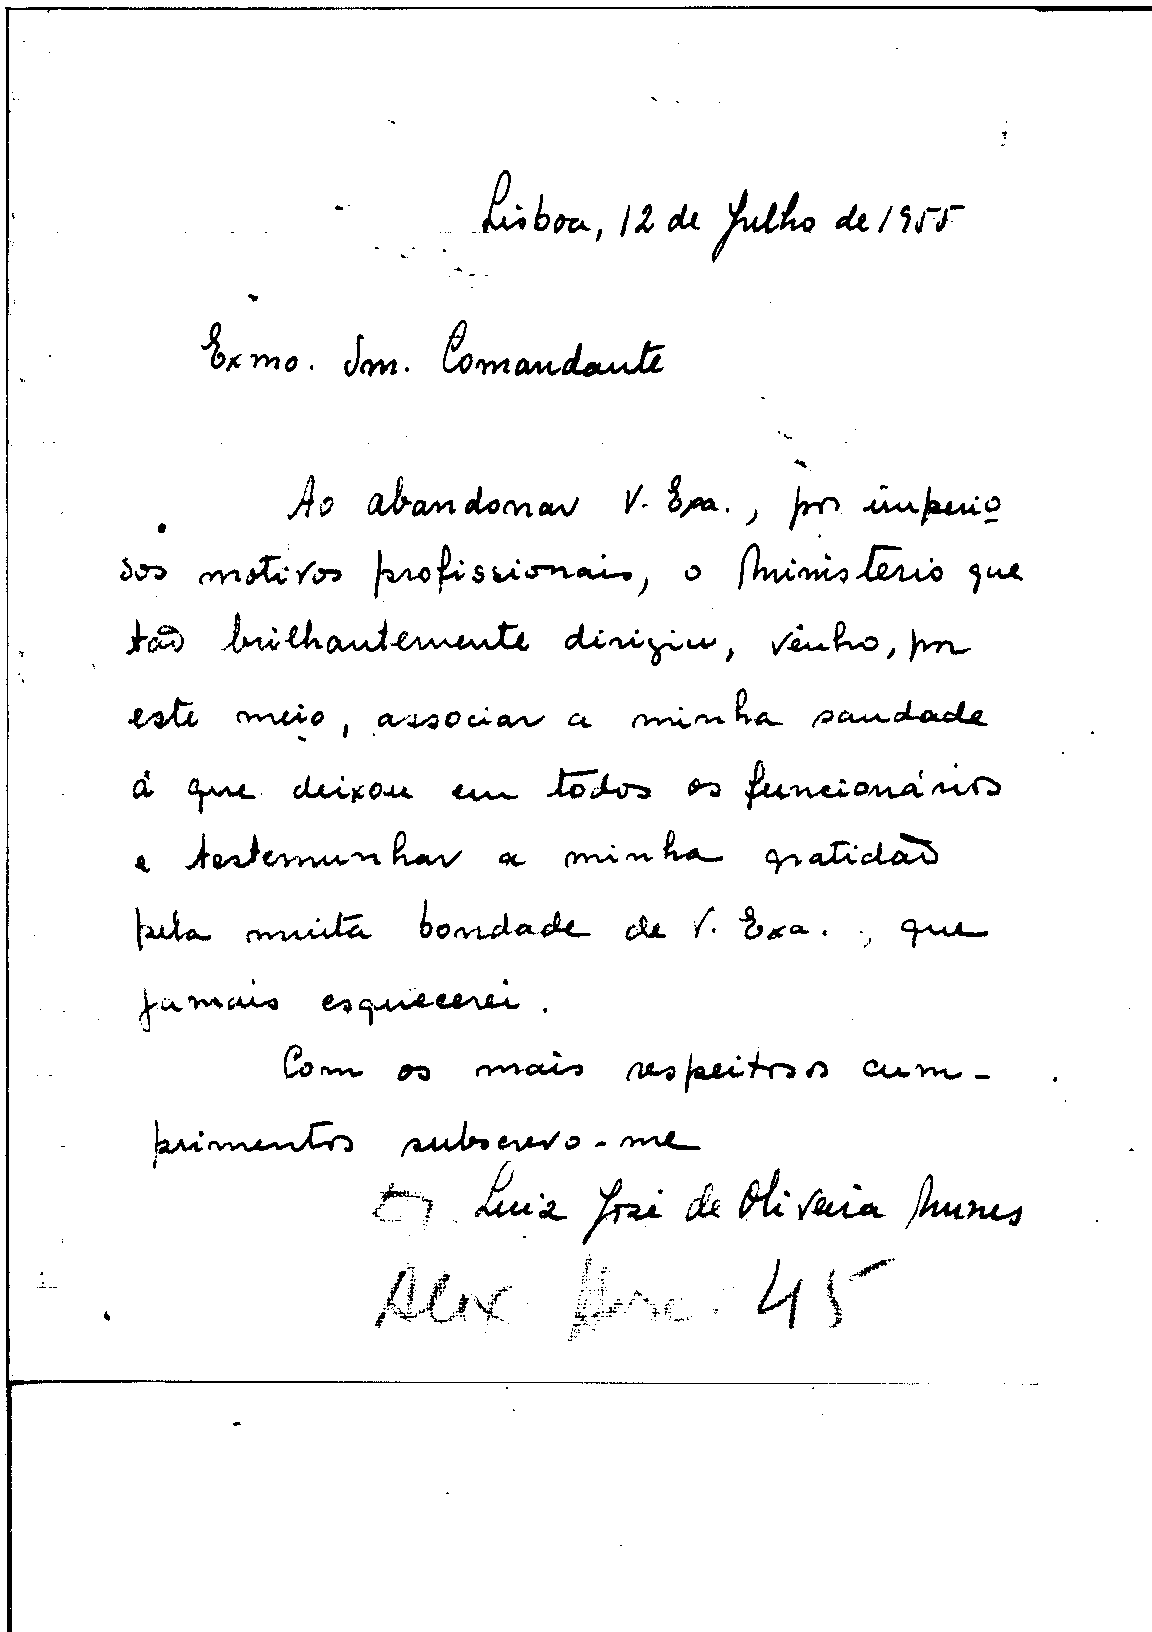 Lisboa, 12 de Julho de 1955
Exmo. Snr. Comandante
Ao abandonar V. Exa., por império
dos motivos profissionais, o Ministério que
tão brilhantemente dirigiu, venho, por
este meio, associar a minha saudade
á que deixou em todos os funcionários
e testemunhar a minha gratidão
pela muita bondade de V. Exa., que
jamais esquecerei.
Com os mais respeitosos cum-
primentos subscrevo-me
Luiz José de Oliveira Nunes
45